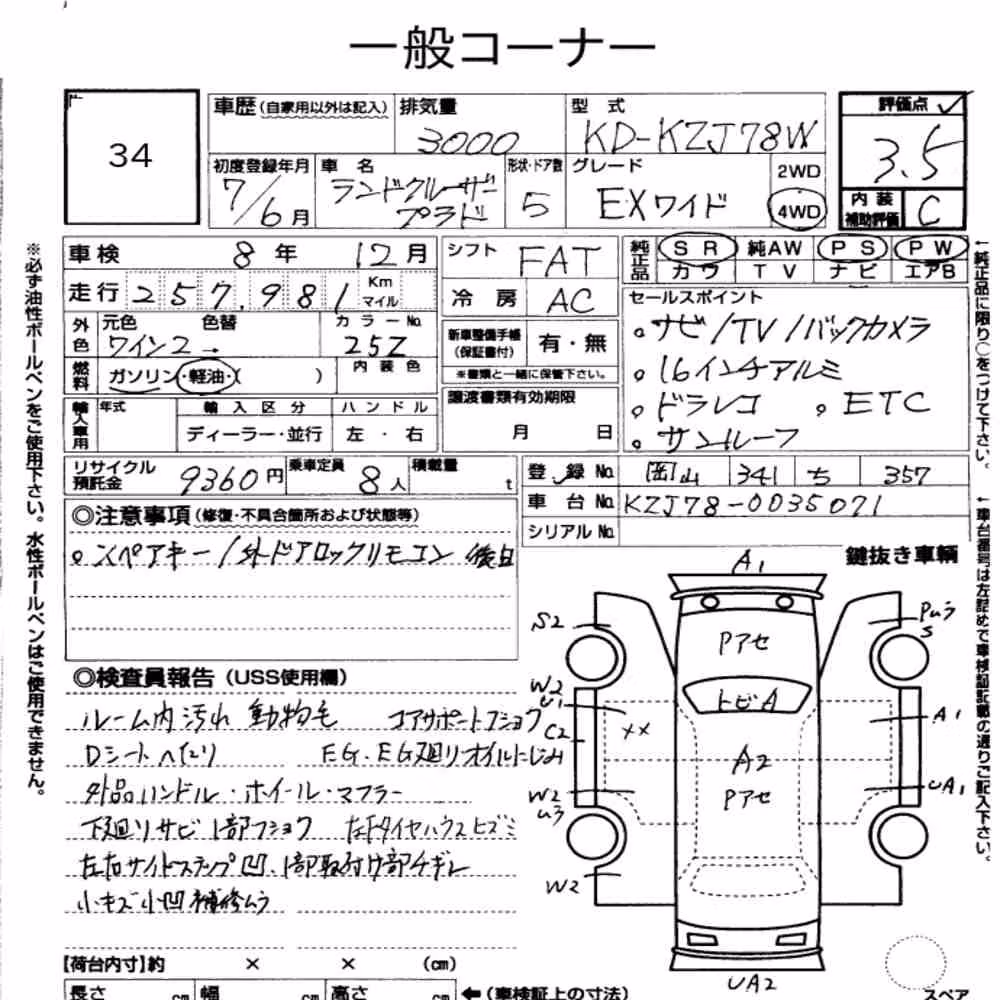 一般コーナー
34
車歴(自家用以外は記入)
排気量
3000
型式
KD-KZJ78W
評価点
3.5
初度登録年月
7/6月
車名
ランドクルーザー
プラド
形状・ドア数
5
グレード
EXワイド
2WD
4WD
内装
補助評価
C
※必ず油性ボールペンをご使用下さい。水性ボールペンはご使用できません。
車検 8年 12月
シフト FAT
純正品
SR 純AW PS PW
カワ TV ナビ エアB
走行 257,981 Km マイル
冷房 AC
セールスポイント
。ナビ/TV/バックカメラ
。16インチアルミ
。ドラレコ 。ETC
。サンルーフ
外色
元色 色替
ワイン2→
カラーNo.
25Z
新車整備手帳
(保証書付)
有・無
※書類と一緒に保管下さい。
燃料
ガソリン・軽油・( )
内装色
輸入車用
年式
輸入区分
ディーラー・並行
ハンドル
左・右
譲渡書類有効期限
月 日
リサイクル
預託金
9360円
乗車定員
8人
積載量
t
登録No.
岡山 341 ち 357
車台No.
KZJ78-0035071
シリアルNo.
←純正品に限り○をつけて下さい。
←車台番号は左詰めで車検証記載の通りご記入下さい。
◎注意事項(修復・不具合箇所および状態等)
。スペアキー/外ドアロックリモコン 後日
鍵抜き車輌
◎検査員報告(USS使用欄)
ルーム内汚れ 動物毛 コアサポートフショク
Dシートヘタリ EG・EG廻りオイルにじみ
外品ハンドル・ホイール・マフラー
下廻りサビ1部フショク 左Fタイヤハウスヒズミ
左右サイドステップ凹、1部取付け部チギレ
小キズ小凹補修ムラ
A1
S2
Pムラ
S
Pアセ
トビA
W2
U1
C2
XX
A1
A2
W2
Uラ
Pアセ
UA1
W2
UA2
【荷台内寸】約 × × (cm)
長さ cm 幅 cm 高さ cm ←(車検証上の寸法)
スペア